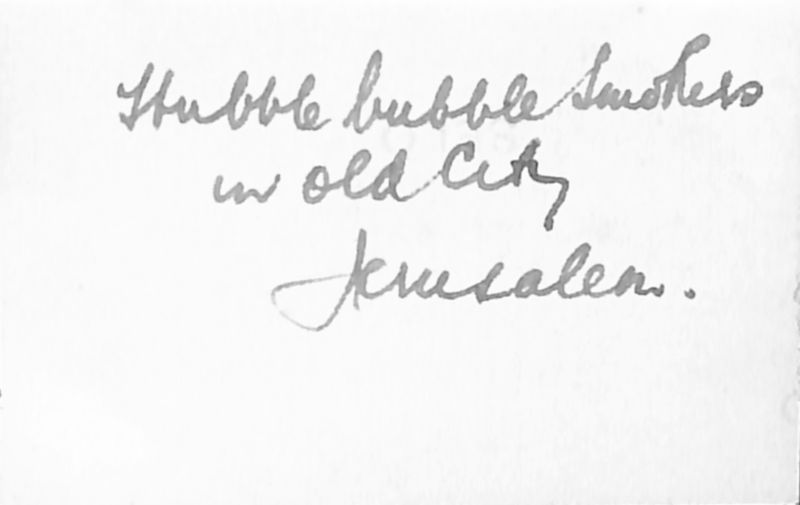 Hubble bubble Smokers
in old City
Jerusalem.